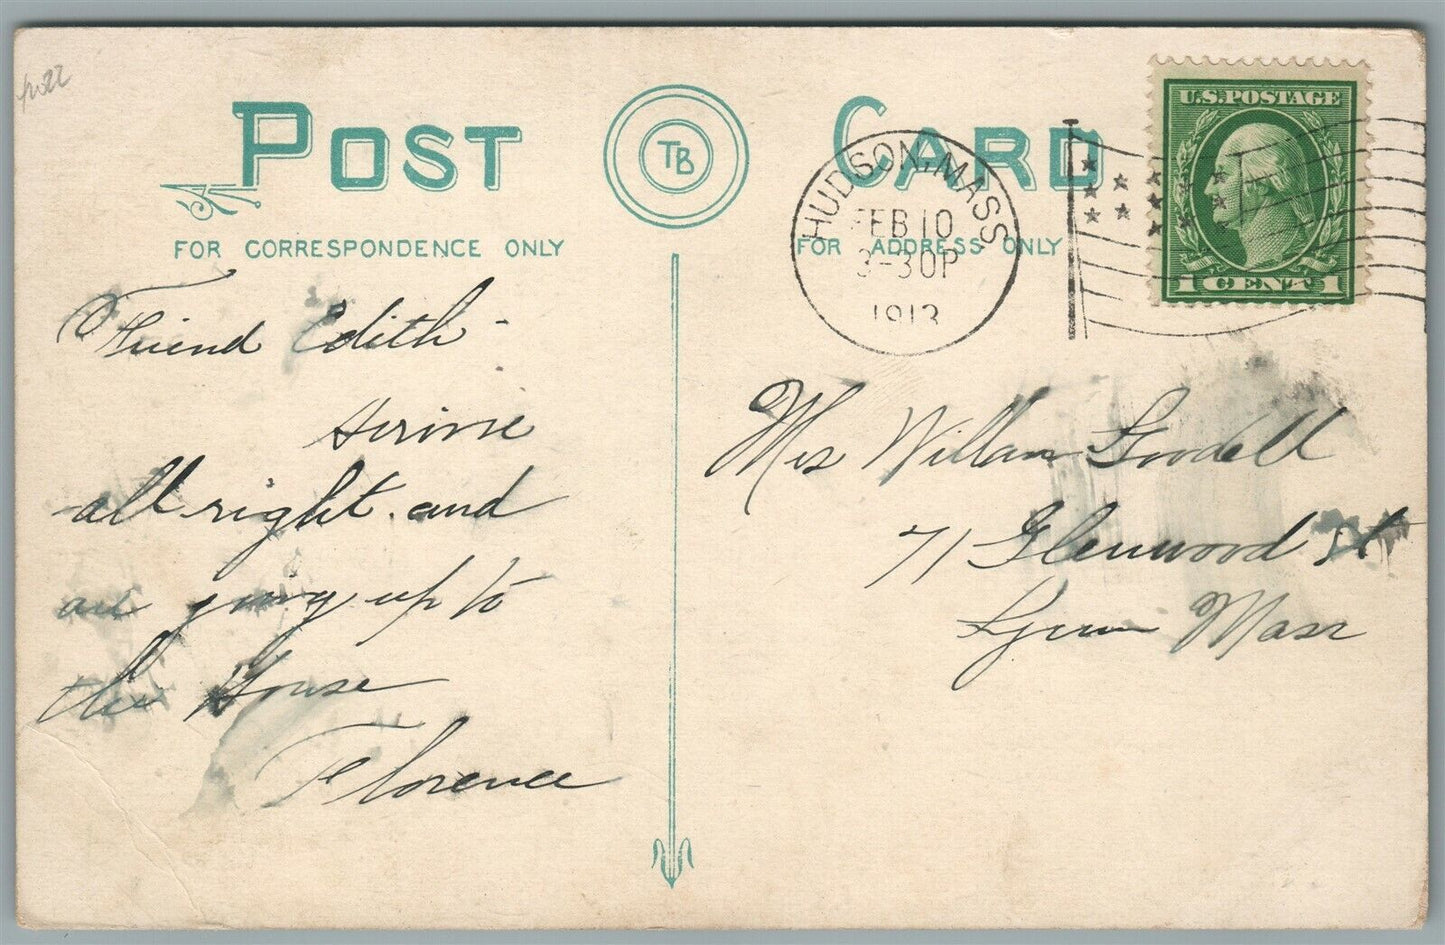 POST CARD
TB
FOR CORRESPONDENCE ONLY
FOR ADDRESS ONLY
HUDSON, MASS
FEB 10
3-30P
1913
U.S. POSTAGE
1 CENT 1
Friend Edith -
Arrive
all right and
are going up to
the House
Florence
Mrs William Goodell
71 Glenwood St
Lynn Mass